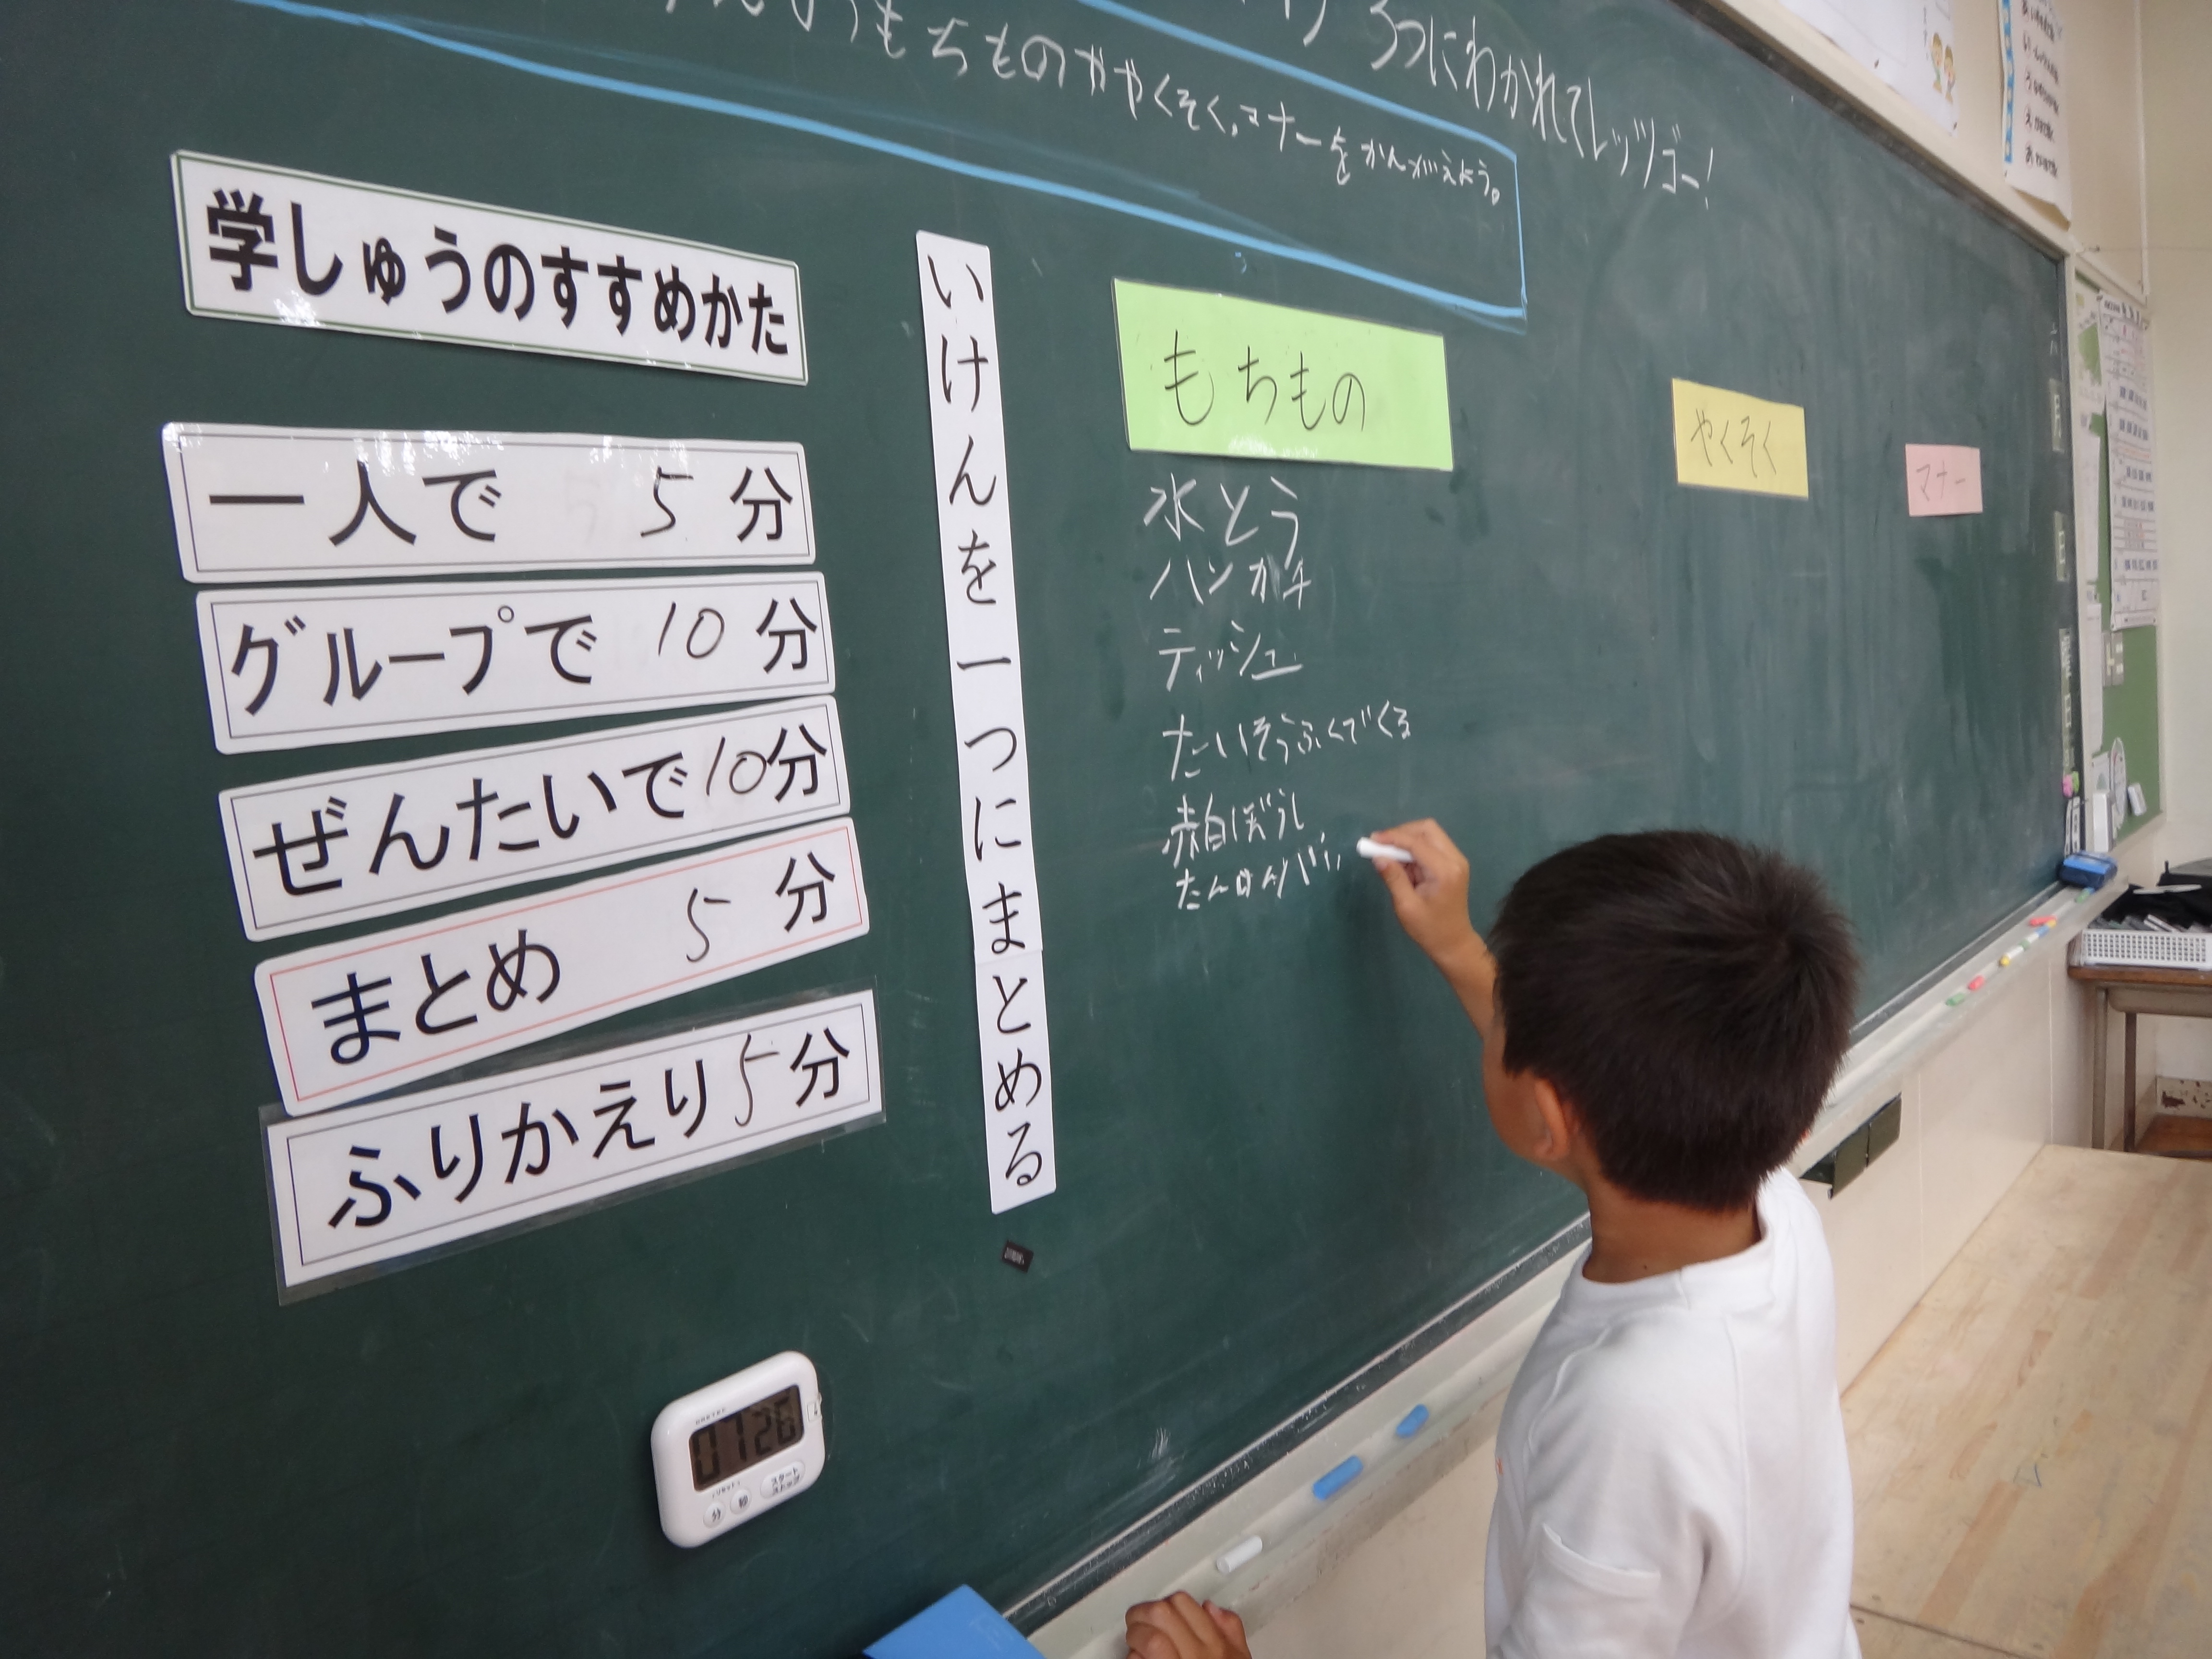 3つにわかれてレッツゴー!
もちものややくそく、マナーをかんがえよう。
学しゅうのすすめかた
一人で 5 分
グループで 10 分
ぜんたいで10分
まとめ 5 分
ふりかえり5分
いけんを一つにまとめる
もちもの
水とう
ハンカチ
ティッシュ
たいそうふくでくる
赤白ぼうし
たんけんバ
やくそく
マナー
07 26
分
秒
スタート
ストップ